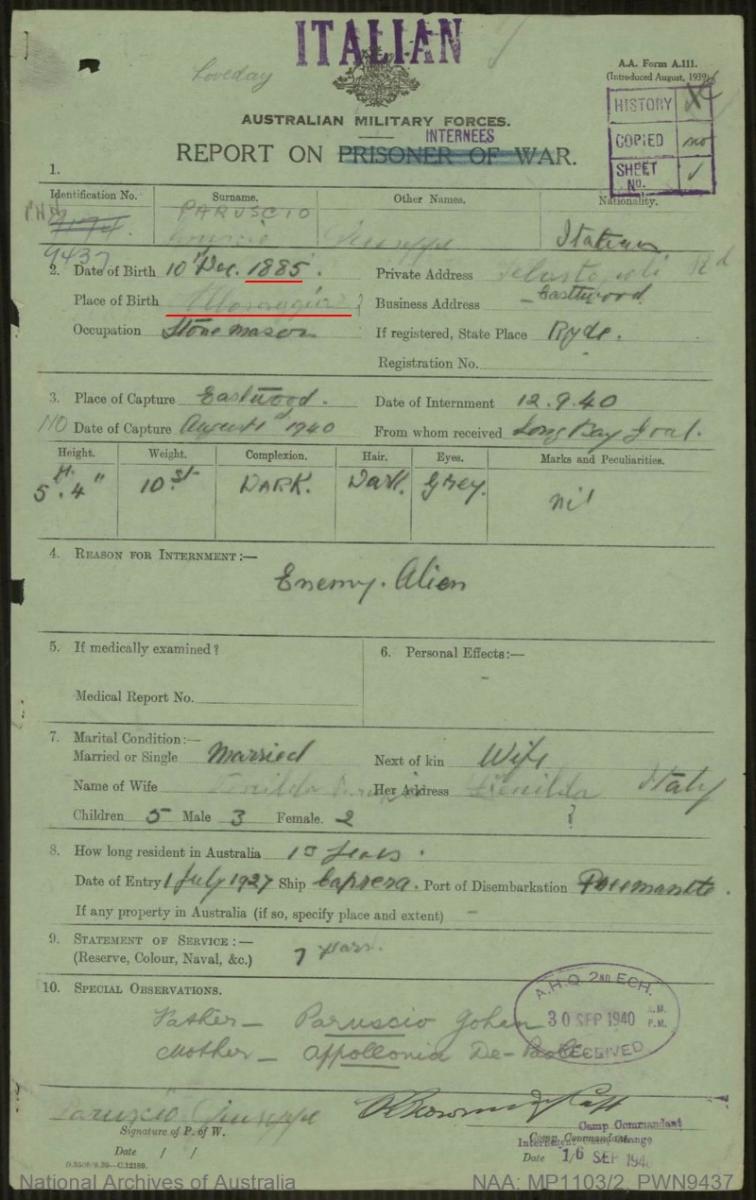 ITALIAN
Loveday
A.A. Form A.111.
(Introduced August, 1939)
AUSTRALIAN MILITARY FORCES.
INTERNEES
REPORT ON PRISONER OF WAR.
HISTORY
COPIED no
SHEET No. 1
1.
Identification No. Surname. Other Names. Nationality.
PARUSCIO
Giuseppe Italian
9437
2. Date of Birth 10 Dec. 1885. Private Address Rd
Place of Birth Business Address Eastwood
Occupation Stone mason If registered, State Place Ryde.
Registration No.
3. Place of Capture Eastwood. Date of Internment 12.9.40
Date of Capture August 1940 From whom received Long Bay Goal.
Height. Weight. Complexion. Hair. Eyes. Marks and Peculiarities.
5 ft. 4" 10 st DARK. Dark. Grey. nil
4. REASON FOR INTERNMENT:—
Enemy. Alien
5. If medically examined? 6. Personal Effects:— -
Medical Report No.
7. Marital Condition:—
Married or Single Married Next of kin Wife
Name of Wife Her Address Italy
Children 5 Male 3 Female. 2 ?
8. How long resident in Australia years.
Date of Entry 1 July 1927 Ship Caprera. Port of Disembarkation
If any property in Australia (if so, specify place and extent) -
9. STATEMENT OF SERVICE:—
(Reserve, Colour, Naval, &c.) 7 years.
10. SPECIAL OBSERVATIONS.
A.H.Q. 2ND ECH.
30 SEP 1940 A.M. P.M.
RECEIVED
Father — Paruscio Gohen
Mother — Appollonia De-
Paruscio Giuseppe Capt
Signature of P. of W.
Camp Commandant
Camp Commandant.
Date / / Date 16 SEP 194
D.3506/8.39—C.12189.
National Archives of Australia NAA: MP1103/2, PWN9437